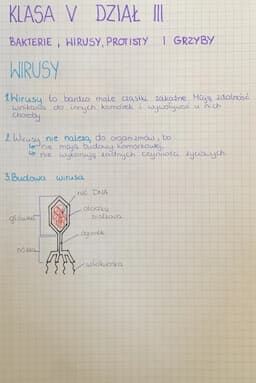 KLASA V DZIAŁ III
BAKTERIE, WIRUSY, PROTISTY I GRZYBY
WIRUSY
1. Wirusy to bardzo małe cząstki zakaźne. Mają zdolność
wnikania do innych komórek i wywołują u nich
choroby.
2. Wirusy nie należą do organizmów, bo
nie mają budowy komórkowej.
nie wykonują żadnych czynności życiowych.
3. Budowa wirusa
nić DNA
otoczka
białkowa
główka
ogonek
nóżka
włókienka